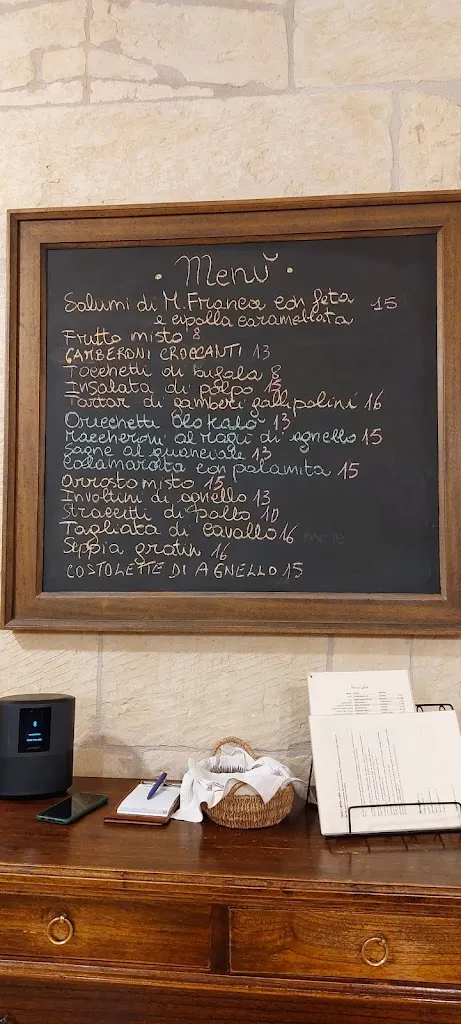 • Menù •
Salumi di M. Franca con feta 15
e cipolla caramellata
Frutto misto 8
GAMBERONI CROCCANTI 13
Tocchetti di bufala 8
Insalata di polpo 15
Tartar di gamberi gallipolini 16
Orecchette 13
Maccheroni al ragù di agnello 15
Sagne al guanciale 13
Calamarata con palamita 15
arrosto misto 15
Involtini di agnello 13
Straccetti di pollo 10
Tagliata di cavallo 16
Seppia gratin 16
COSTOLETTE DI AGNELLO 15